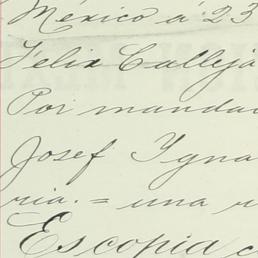 México á 23
Felix Calleja
Por mandad
Josef Ygna
ria. = una r
Es copia c